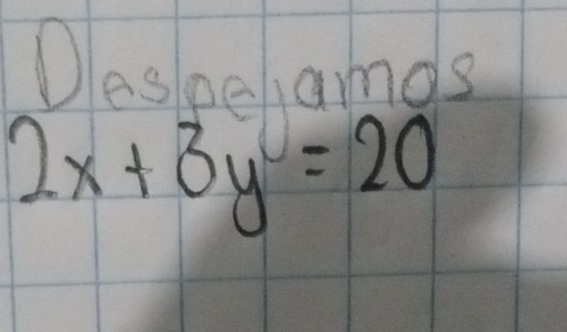 Despejamos
2x + 3y = 20